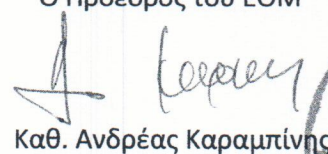 Ο Πρόεδρος του ΕΟΜ
Καθ. Ανδρέας Καραμπίνης